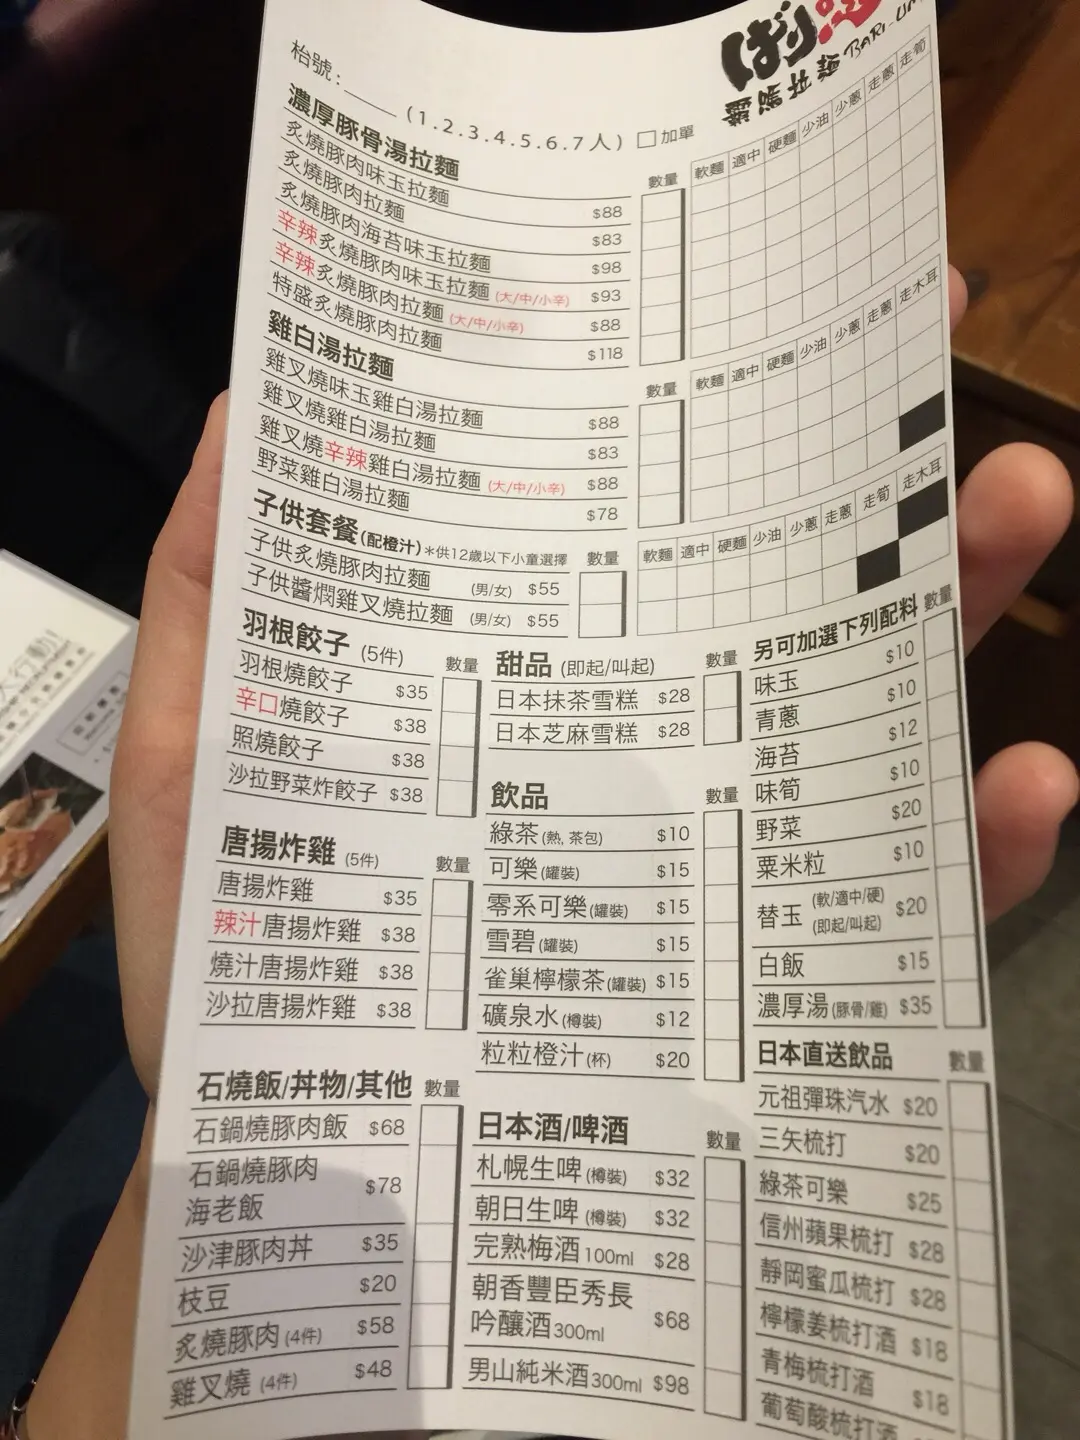 ばり
BARI-UMA
霸嗎拉麵
枱號:____(1.2.3.4.5.6.7人) □加單
濃厚豚骨湯拉麵 數量 軟麵 適中 硬麵 少油 少蔥 走蔥 走筍
炙燒豚肉味玉拉麵 $88
炙燒豚肉拉麵 $83
炙燒豚肉海苔味玉拉麵 $98
辛辣炙燒豚肉味玉拉麵 (大/中/小辛) $93
辛辣炙燒豚肉拉麵 (大/中/小辛) $88
特盛炙燒豚肉拉麵 $118
雞白湯拉麵 數量 軟麵 適中 硬麵 少油 少蔥 走蔥 走木耳
雞叉燒味玉雞白湯拉麵 $88
雞叉燒雞白湯拉麵 $83
雞叉燒辛辣雞白湯拉麵 (大/中/小辛) $88
野菜雞白湯拉麵 $78
子供套餐(配橙汁)*供12歲以下小童選擇 數量 軟麵 適中 硬麵 少油 少蔥 走蔥 走筍 走木耳
子供炙燒豚肉拉麵 (男/女) $55
子供醬燜雞叉燒拉麵 (男/女) $55
羽根餃子 (5件) 數量
羽根燒餃子 $35
辛口燒餃子 $38
照燒餃子 $38
沙拉野菜炸餃子 $38
唐揚炸雞 (5件) 數量
唐揚炸雞 $35
辣汁唐揚炸雞 $38
燒汁唐揚炸雞 $38
沙拉唐揚炸雞 $38
石燒飯/丼物/其他 數量
石鍋燒豚肉飯 $68
石鍋燒豚肉
海老飯 $78
沙津豚肉丼 $35
枝豆 $20
炙燒豚肉 (4件) $58
雞叉燒 (4件) $48
甜品 (即起/叫起) 數量
日本抹茶雪糕 $28
日本芝麻雪糕 $28
飲品 數量
綠茶(熱, 茶包) $10
可樂(罐裝) $15
零系可樂(罐裝) $15
雪碧(罐裝) $15
雀巢檸檬茶(罐裝) $15
礦泉水(樽裝) $12
粒粒橙汁(杯) $20
日本酒/啤酒 數量
札幌生啤(樽裝) $32
朝日生啤(樽裝) $32
完熟梅酒100ml $28
朝香豐臣秀長
吟釀酒300ml $68
男山純米酒300ml $98
另可加選下列配料 數量
味玉 $10
青蔥 $10
海苔 $12
味筍 $10
野菜 $20
粟米粒 $10
替玉 (軟/適中/硬) (即起/叫起) $20
白飯 $15
濃厚湯(豚骨/雞) $35
日本直送飲品 數量
元祖彈珠汽水 $20
三矢梳打 $20
綠茶可樂 $25
信州蘋果梳打 $28
靜岡蜜瓜梳打 $28
檸檬姜梳打酒 $18
青梅梳打酒 $18
葡萄酸梳打酒